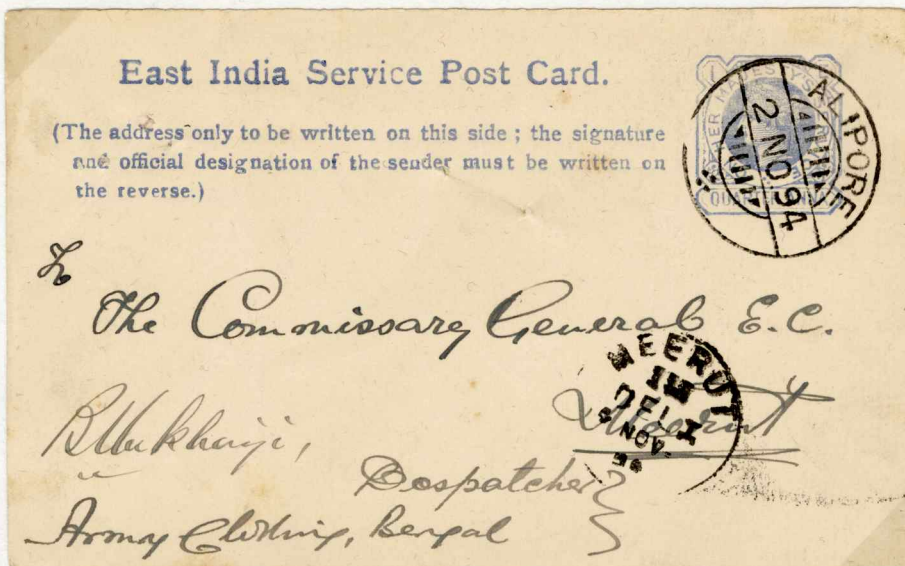 East India Service Post Card.
(The address only to be written on this side ; the signature
and official designation of the sender must be written on
the reverse.)
ALIPORE
2 NO.94
QUARTER ANNA
To
The Commissary General E.C.
MEERUT
Meerut
BMukharji,
Despatcher
Army Clothing, Bengal